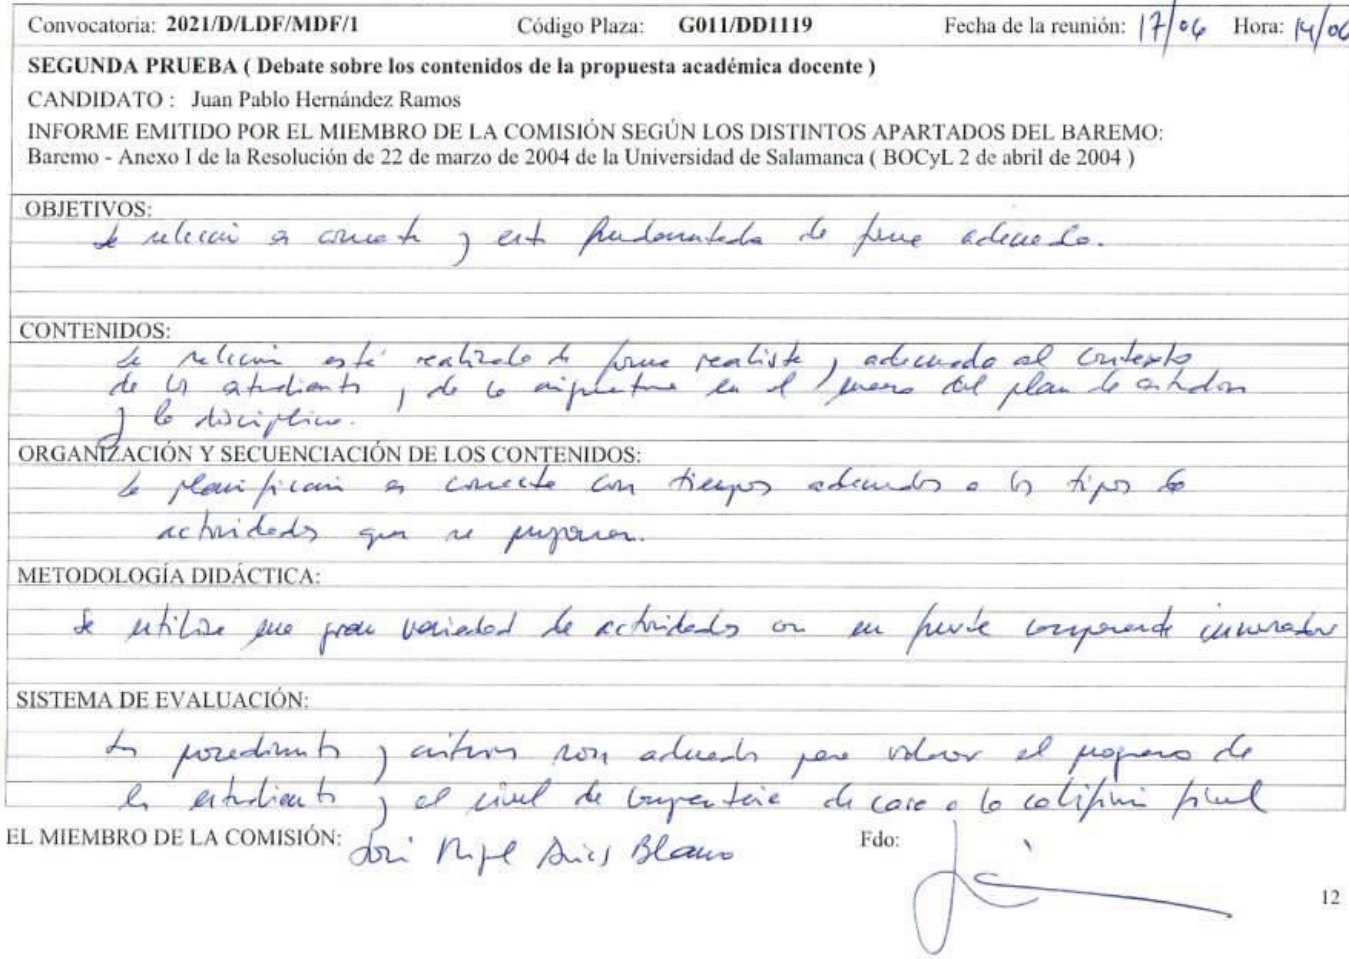 Convocatoria: 2021/D/LDF/MDF/1 Código Plaza: G011/DD1119 Fecha de la reunión: 17/06 Hora: 14/06
SEGUNDA PRUEBA ( Debate sobre los contenidos de la propuesta académica docente )
CANDIDATO : Juan Pablo Hernández Ramos
INFORME EMITIDO POR EL MIEMBRO DE LA COMISIÓN SEGÚN LOS DISTINTOS APARTADOS DEL BAREMO:
Baremo - Anexo I de la Resolución de 22 de marzo de 2004 de la Universidad de Salamanca ( BOCyL 2 de abril de 2004 )
OBJETIVOS:
La selección es correcta y está fundamentada de forma adecuada.
CONTENIDOS:
La selección está realizada de forma realista, adecuada al contexto
de los estudiantes, de la asignatura en el marco del plan de estudios
y la disciplina.
ORGANIZACIÓN Y SECUENCIACIÓN DE LOS CONTENIDOS:
La planificación es correcta con tiempos adecuados a los tipos de
actividades que se proponen.
METODOLOGÍA DIDÁCTICA:
Se utiliza una gran variedad de actividades con un fuerte componente innovador
SISTEMA DE EVALUACIÓN:
Los procedimientos y criterios son adecuados para valorar el progreso de
los estudiantes y el nivel de competencia de cara a la calificación final
EL MIEMBRO DE LA COMISIÓN: Blanco Fdo:
12